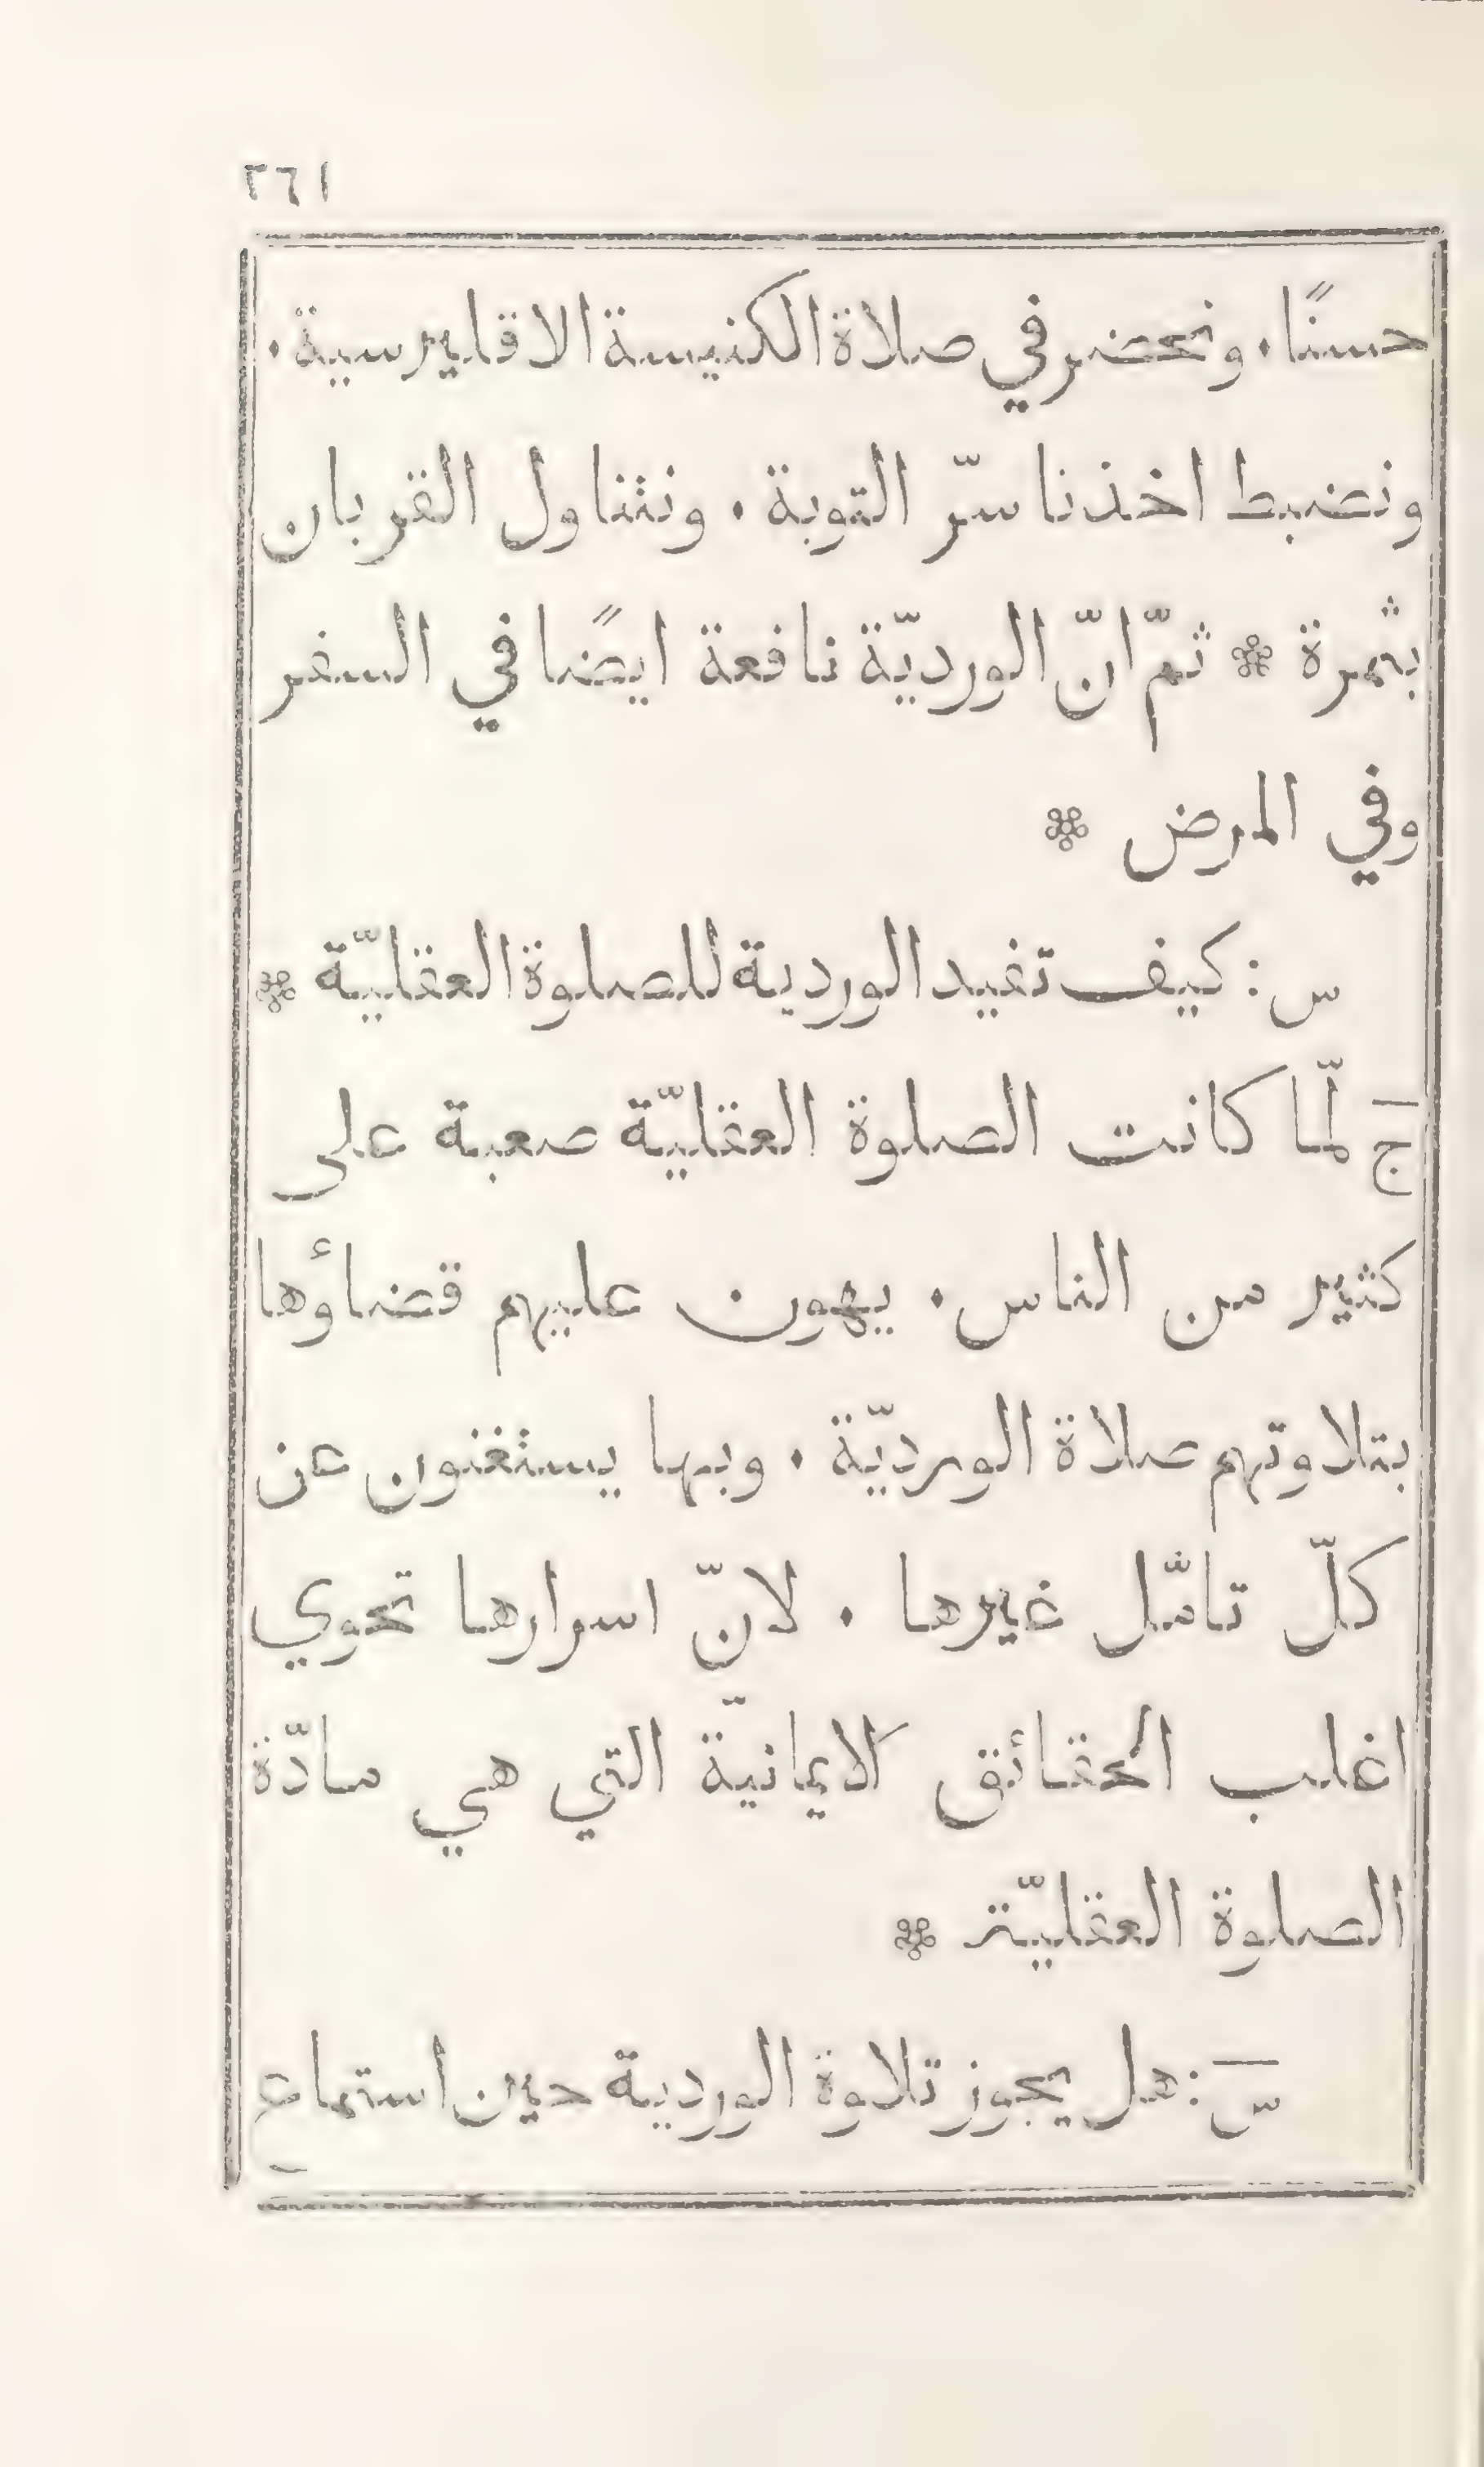 ٢٦١
حسنًا. ونحضر في صلاة الكنيسة الاقليرسية.
ونضبط اخذنا سرّ التوبة. ونتناول القربان
بثمرة * ثمّ انّ الورديّة نافعة ايضًا في السفر
وفي المرض *
س: كيف تفيد الوردية للصلوة العقليّة *
ج لمّا كانت الصلوة العقليّة صعبة على
كثير من الناس. يهون عليهم قضاؤها
بتلاوتهم صلاة الورديّة. وبها يستغنون عن
كلّ تامّل غيرها. لانّ اسرارها تحوي
اغلب الحقائق الايمانيّة التي هي مادّة
الصلوة العقليّة *
س: هل يجوز تلاوة الوردية حين استماع